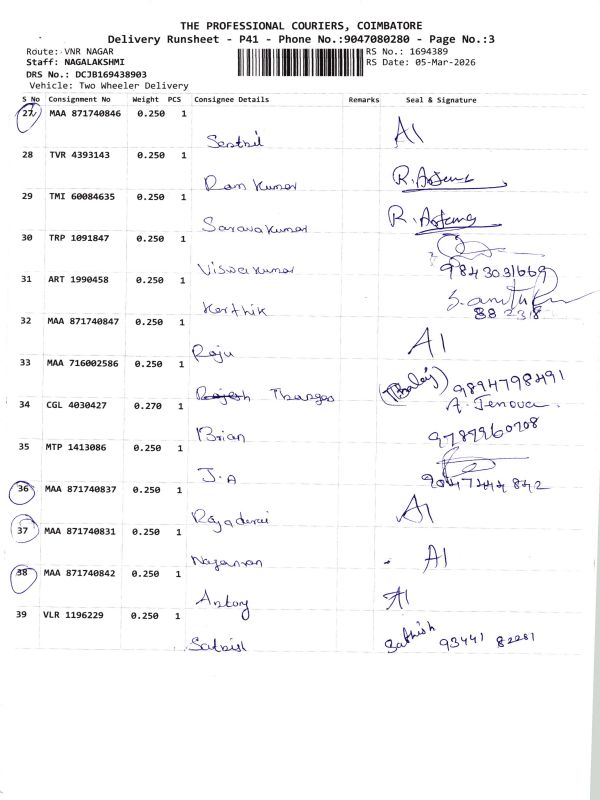 THE PROFESSIONAL COURIERS, COIMBATORE
Delivery Runsheet - P41 - Phone No.:9047080280 - Page No.:3
Route: VNR NAGAR RS No.: 1694389
Staff: NAGALAKSHMI RS Date: 05-Mar-2026
DRS No.: DCJB169438903
Vehicle: Two Wheeler Delivery
S No Consignment No Weight PCS Consignee Details Remarks Seal & Signature
27 MAA 871740846 0.250 1
A1
28 TVR 4393143 0.250 1
Ram Kumar R.
29 TMI 60084635 0.250 1
Saravakumar R.
30 TRP 1091847 0.250 1
Viswakumar 9843031669
31 ART 1990458 0.250 1
Karthik 88 2318
32 MAA 871740847 0.250 1
Raju A1
33 MAA 716002586 0.250 1
(Balaj) 9894798491
34 CGL 4030427 0.270 1 A. Jenova.
Brian 9789960708
35 MTP 1413086 0.250 1
J.A 9047444842
36 MAA 871740837 0.250 1
A1
37 MAA 871740831 0.250 1
A1
38 MAA 871740842 0.250 1
Antony A1
39 VLR 1196229 0.250 1
Sathish 93441 82281